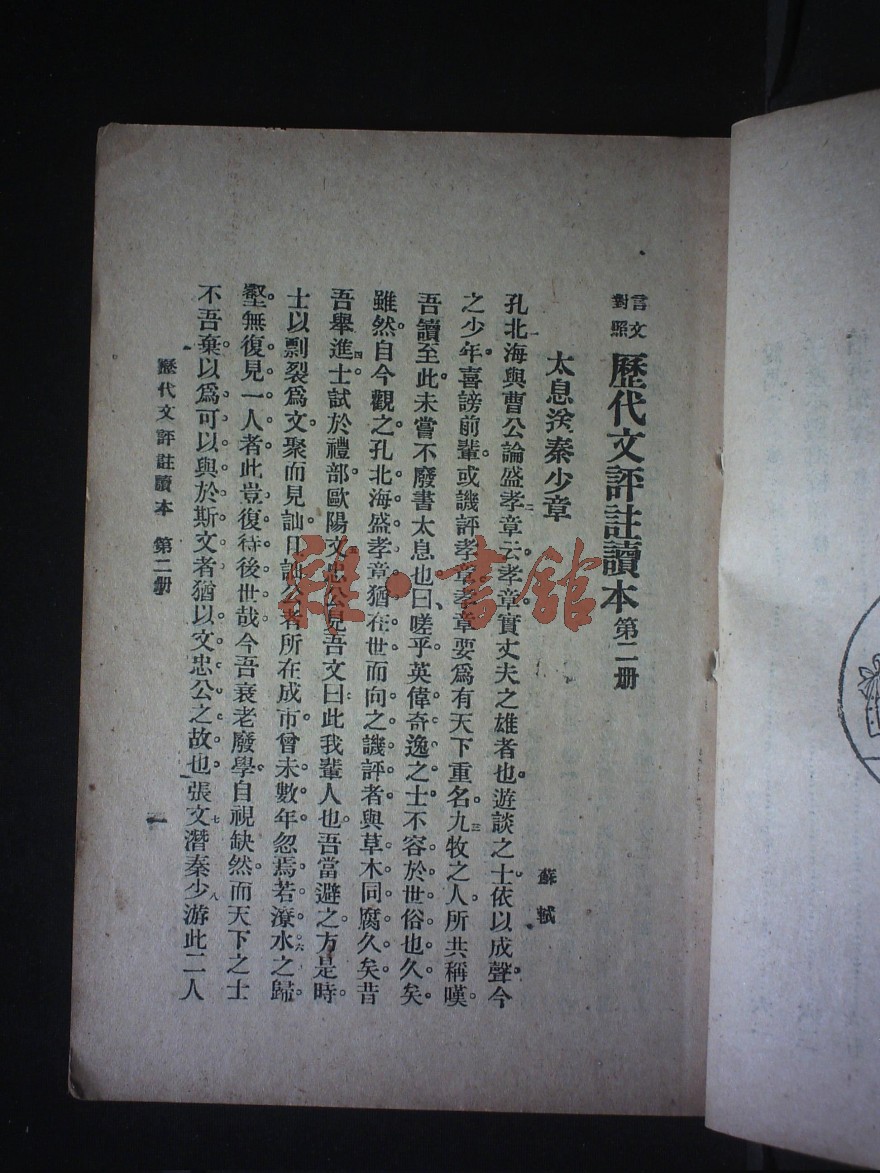 言文對照 歷代文評註讀本 第二册
太息送秦少章
蘇軾
孔北海與曹公論盛孝章云孝章實丈夫之雄者也遊談之士依以成聲今
之少年喜謗前輩。或譏評孝章孝章要爲有天下重名九牧之人所共稱嘆
吾讀至此未嘗不廢書太息也曰嗟乎英偉奇逸之士不容於世俗也久矣
雖然自今觀之孔北海盛孝章猶在世而向之譏評者與草木同腐久矣昔
吾舉進士試於禮部歐陽文忠公見吾文曰此我輩人也吾當避之方是時
士以剽裂爲文聚而見訕且訕公者所在成市曾未數年忽焉若潦水之歸
壑無復見一人者此豈復待後世哉今吾衰老廢學自視缺然而天下之士
不吾棄以爲可以與於斯文者猶以文忠公之故也張文潛秦少游此二人
歷代文評註讀本 第二册
一
雜·書館